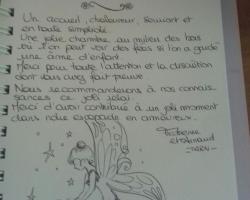 Un accueil, chaleureux, souriant et
en toute simplicité
Une jolie chambre au milieu des bois
ou "l'on peut voir des fées si l'on a gardé"
une âme d'enfant.
Merci pour toute l'attention et la discrétion
dont vous avez fait preuve
Nous recommanderons à nos connais-
sances ce joli relai.
Merci d'avoir contribué à un joli moment
dans notre escapade en amoureux.
Fabienne
et Arnaud